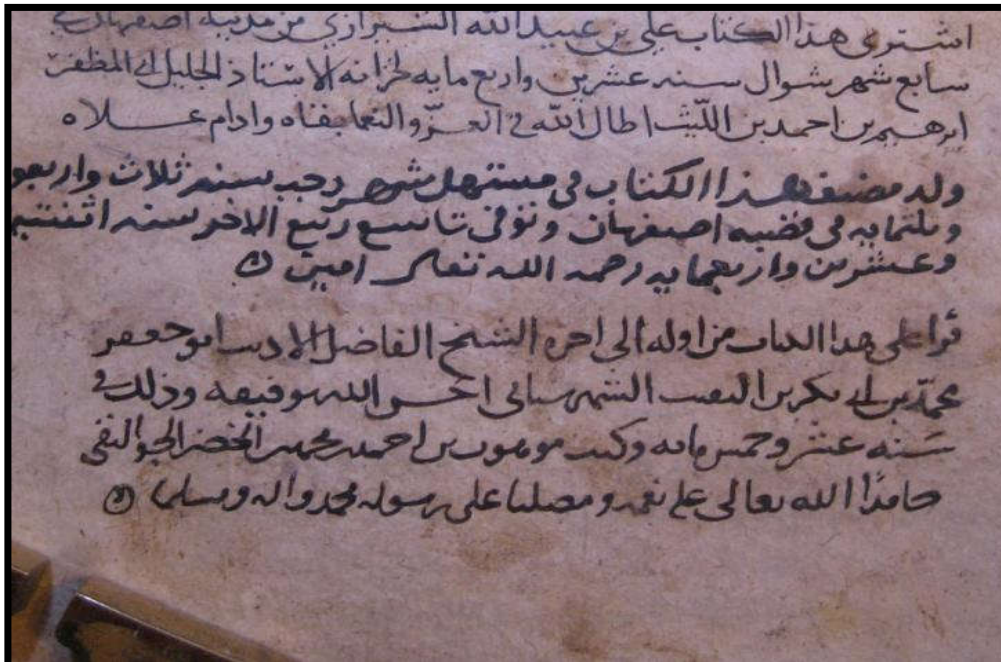 اشترى هذا الكتاب علي بن عبيد الله الشيرازي من مدينة اصفهان في
سابع شهر شوال سنه عشرين واربع مايه لخزانه الاستاذ الجليل ابي المظفر
ابرهيم بن احمد بن الليث اطال الله في العز والنعما بقاه وادام علاه
ولد مصنف هذا الكتاب في مستهل شهر رجب سنه ثلاث واربعو
وثلثمايه في قصبه اصفهان وتوفي تاسع ربيع الاخر سنه اثنتي
وعشرين واربعمايه رحمه الله تعالى امين
قرا على هذا الكتاب من اوله الى اخره الشيخ الفاضل الاديب ابو جعفر
محمد بن ابي بكر بن النقيب الشهرستاني احسن الله توفيقه وذلك في
سنه عشر وخمس مايه وكتب موهوب بن احمد بن محمد بن الخضر الجواليقي
حامدا الله تعالى على نعمه ومصليا على رسوله محمد واله ومسلما